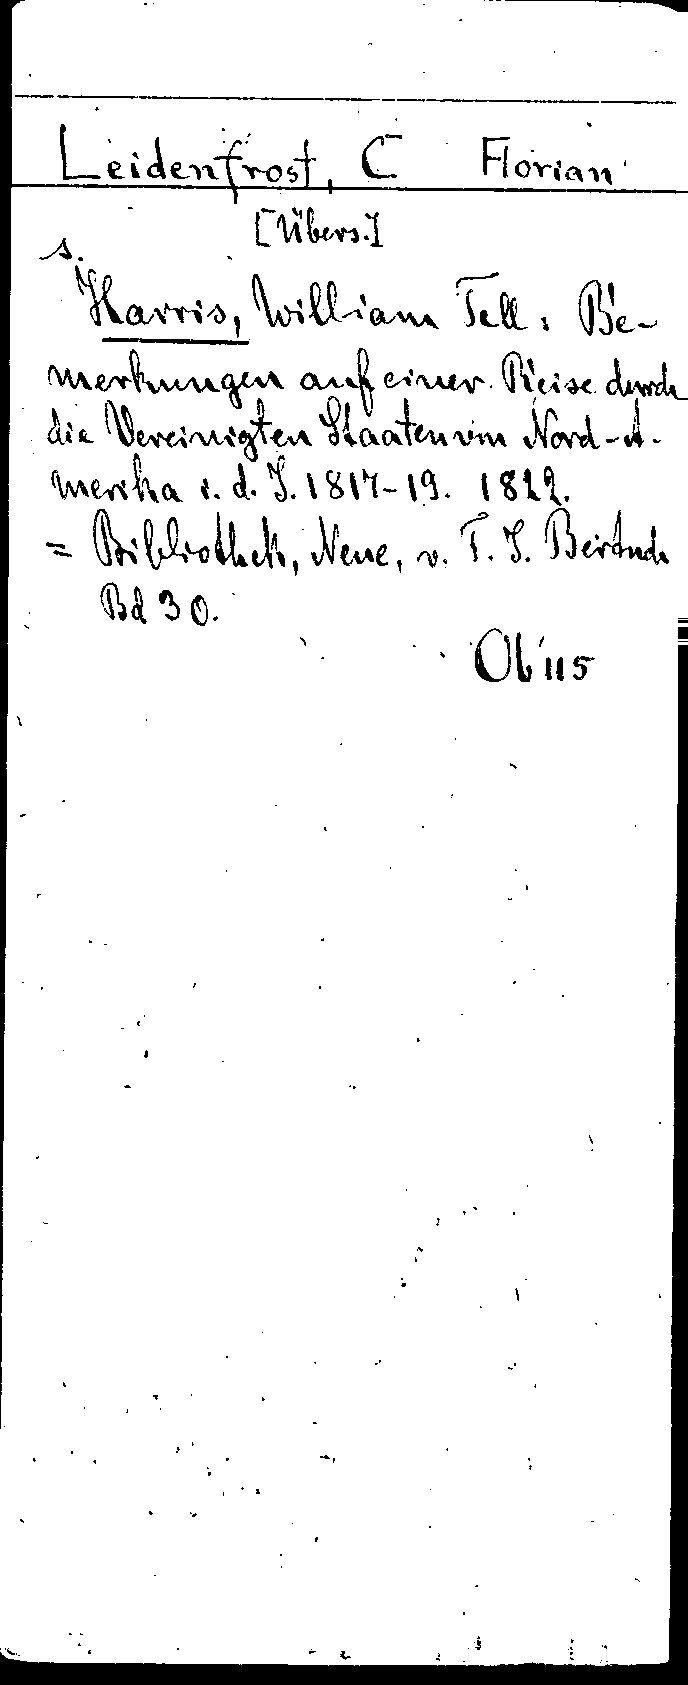 Leidenfrost, C Florian
[Übers.]
s.
Harris, William Tell: Be-
merkungen auf einer Reise durch
die Vereinigten Staaten von Nord-A-
merika i. d. J. 1817-19. 1822.
= Bibliothek, Neue, v. F. J. Bertuch
Bd 30.
Ob 115